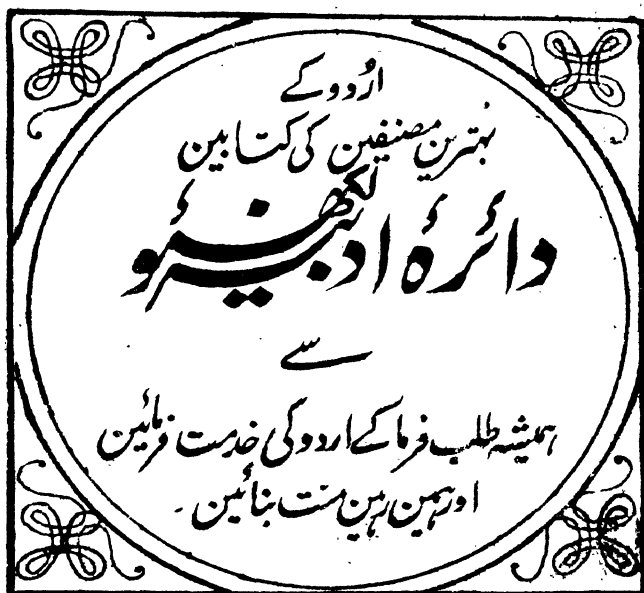 اُردو کے
بہترین مصنفین کی کتابین
دائرۂ ادبیہ لکھنؤ
سے
ہمیشہ طلب فرما کے اردو کی خدمت فرمائین
اور ہمین رہین منت بنائین۔